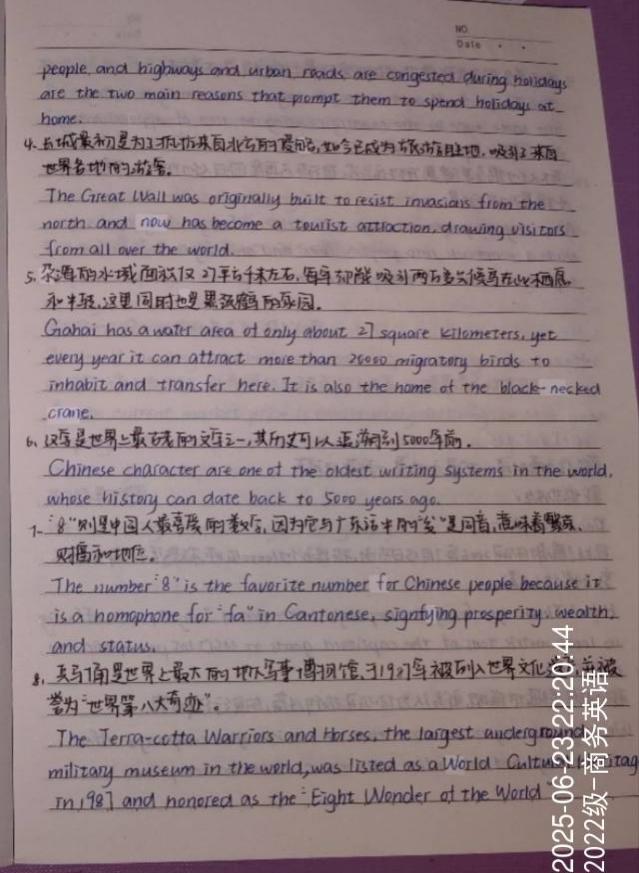 NO.
Date
people and highways and urban roads are congested during holidays
are the two main reasons that prompt them to spend holidays at
home.
4. 长城最初是为了抵抗来自北方的侵略,如今已成为旅游胜地,吸引了来自
世界各地的游客。
The Great Wall was originally built to resist invasions from the
north and now has become a tourist attraction, drawing visitors
from all over the world.
5. 尕海的水域面积仅27平方千米左右,每年却能吸引两万多只候鸟在此栖息
和中转,这里同时也是黑颈鹤的家园。
Gahai has a water area of only about 27 square kilometers, yet
every year it can attract more than 20000 migratory birds to
inhabit and transfer here. It is also the home of the black-necked
crane.
6. 汉字是世界上最古老的文字之一,其历史可以追溯到5000年前.
Chinese character are one of the oldest writing systems in the world,
whose history can date back to 5000 years ago.
7. "8"则是中国人最喜爱的数字,因为它与广东话中的"发"是同音,意味着繁荣、
财富和地位。
The number "8" is the favorite number for Chinese people because it
is a homophone for "fa" in Cantonese, signfying prosperity, wealth,
and status.
8. 兵马俑是世界上最大的地下军事博物馆,于1987年被列入世界文化遗产,并被
誉为"世界第八大奇迹"。
The Terra-cotta Warriors and Horses, the largest underground
military museum in the world, was listed as a World Cultural Heritag
in 1987 and honored as the "Eight Wonder of the World
2025-06-23 22:20:44
2022级-商务英语